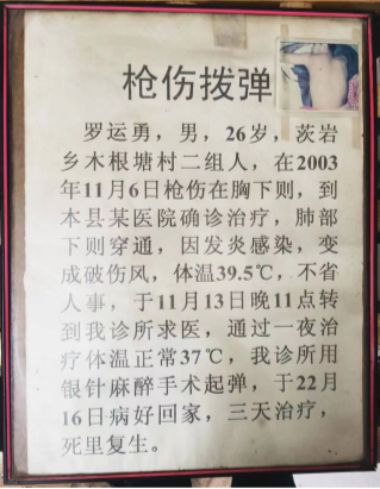 枪伤拨弹
罗运勇，男，26岁，茨岩
乡木根塘村二组人，在2003
年11月6日枪伤在胸下则，到
本县某医院确诊治疗，肺部
下则穿通，因发炎感染，变
成破伤风，体温39.5℃，不省
人事，于11月13日晚11点转
到我诊所求医，通过一夜治
疗体温正常37℃，我诊所用
银针麻醉手术起弹，于22月
16日病好回家，三天治疗，
死里复生。